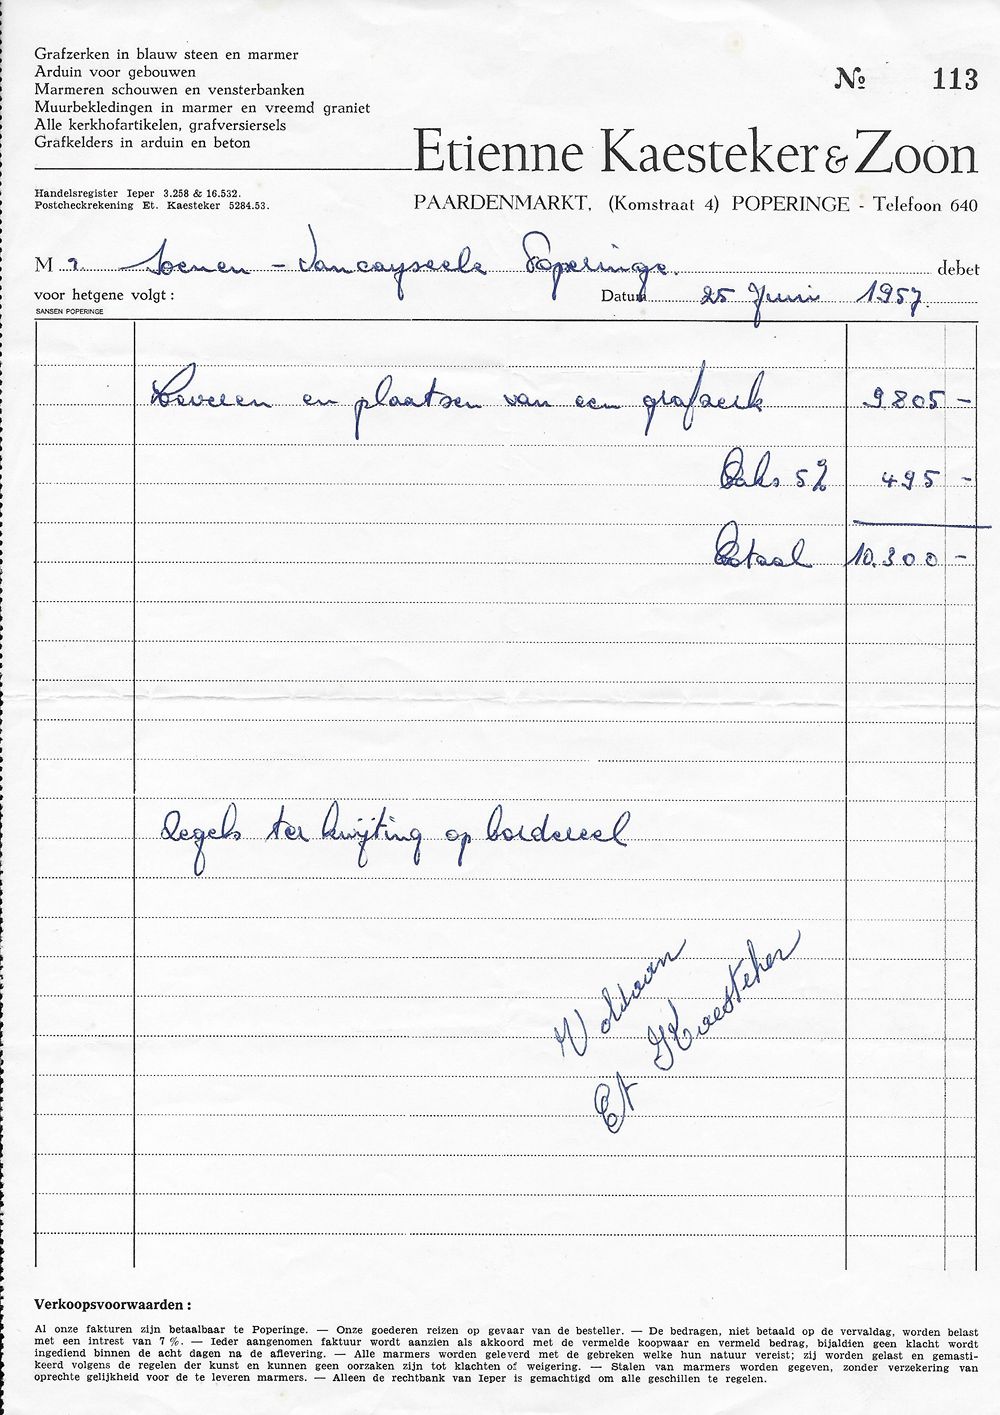 Grafzerken in blauw steen en marmer
Arduin voor gebouwen
Marmeren schouwen en vensterbanken
Muurbekledingen in marmer en vreemd graniet
Alle kerkhofartikelen, grafversiersels
Grafkelders in arduin en beton
№ 113
Etienne Kaesteker & Zoon
Handelsregister Ieper 3.258 & 16.532.
Postcheckrekening Et. Kaesteker 5284.53.
PAARDENMARKT, (Komstraat 4) POPERINGE - Telefoon 640
M r. Soenen - Vancayseele Poperinge. debet
voor hetgene volgt :
Datum 25 Juni 1957.
SANSEN POPERINGE
Leveren en plaatsen van een grafzerk 9805 -
Taks 5% 495 -
Totaal 10.300 -
Zegels ter kwijting op bordereel
Voldaan
Et Kaesteker
Verkoopsvoorwaarden :
Al onze fakturen zijn betaalbaar te Poperinge. — Onze goederen reizen op gevaar van de besteller. — De bedragen, niet betaald op de vervaldag, worden belast
met een intrest van 7 %. — Ieder aangenomen faktuur wordt aanzien als akkoord met de vermelde koopwaar en vermeld bedrag, bijaldien geen klacht wordt
ingediend binnen de acht dagen na de aflevering. — Alle marmers worden geleverd met de gebreken welke hun natuur vereist; zij worden gelast en gemasti-
keerd volgens de regelen der kunst en kunnen geen oorzaken zijn tot klachten of weigering. — Stalen van marmers worden gegeven, zonder verzekering van
oprechte gelijkheid voor de te leveren marmers. — Alleen de rechtbank van Ieper is gemachtigd om alle geschillen te regelen.